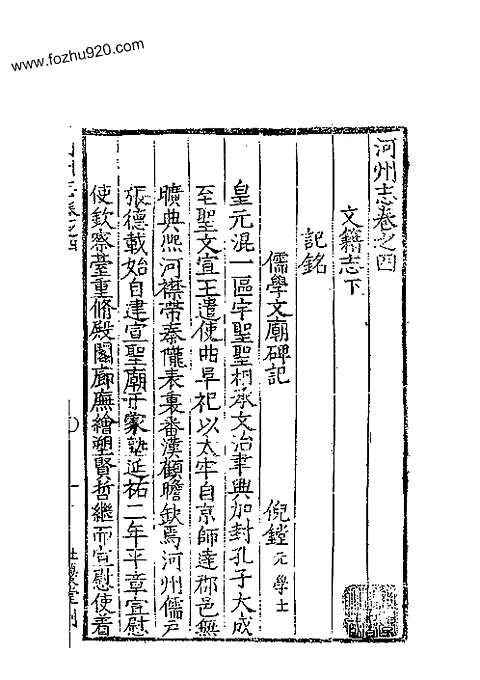 www.fozhu920.com
河州志卷之四
文籍志下
記銘
儒學文廟碑記
倪鏜元學士
皇元混一區宇聖聖相承文治聿興加封孔子大成
至聖文宣王遣使曲阜祀以太牢自京師達郡邑無
曠典熈河襟帶秦隴表裏番漢顧瞻欽焉河州儒戸
張德載始自建宣聖廟于家塾延祐二年平章宣慰
使欽察臺重脩殿閣廊廡繪塑賢哲繼而宣慰使着